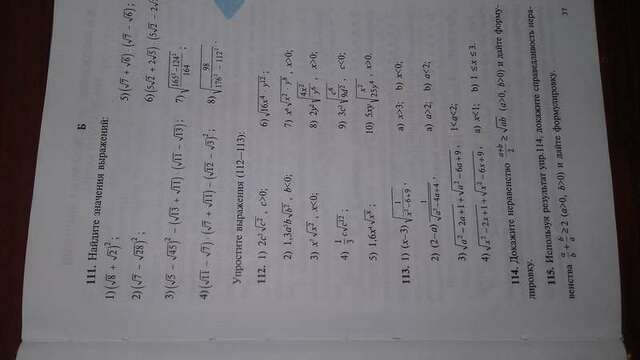 Б
111. Найдите значения выражений:
1) (√8 + √2)²;
5) (√7 + √6) · (√7 − √6);
2) (√7 − √28)²;
6) (5√2 + 2√5) · (5√2 − 2√
3) (√5 − √45)² − (√13 + √11) · (√11 − √13);
7) √((165² − 124²)/164);
4) (√11 − √7) · (√7 + √11) − (√12 − √3)²;
8) √(98/(176² − 112²)).
Упростите выражения (112—113):
112. 1) 2c²√c², c>0;
6) √(16x⁴ · y¹²);
2) 1,3a²b√b², b<0;
7) x⁶√(x² · y⁸), x>0;
3) x²√x², x<0;
8) 2y²√(4x²/y⁶), x>0;
4) 1/3 c√c¹²;
9) 3c³√(c⁶/9d²), c<0;
5) 1,6x⁴√x⁸;
10) 5xy√(x²/25y⁴), x>0.
113. 1) (x−3)√(1/(x²−6+9)),
a) x>3; b) x<0;
2) (2−a) 1/√(a²−4a+4),
a) a>2; b) a<2;
3) √(a²−2a+1)+√(a²−6a+9), 1<a<2;
4) √(x²−2x+1)+√(x²−6x+9), a) x<1; b) 1≤x≤3.
114. Докажите неравенство (a+b)/2 ≥ √ab (a>0, b>0) и дайте форму-
лировку.
115. Используя результат упр.114, докажите справедливость нера-
венства a/b + b/a ≥ 2 (a>0, b>0) и дайте формулировку.
37